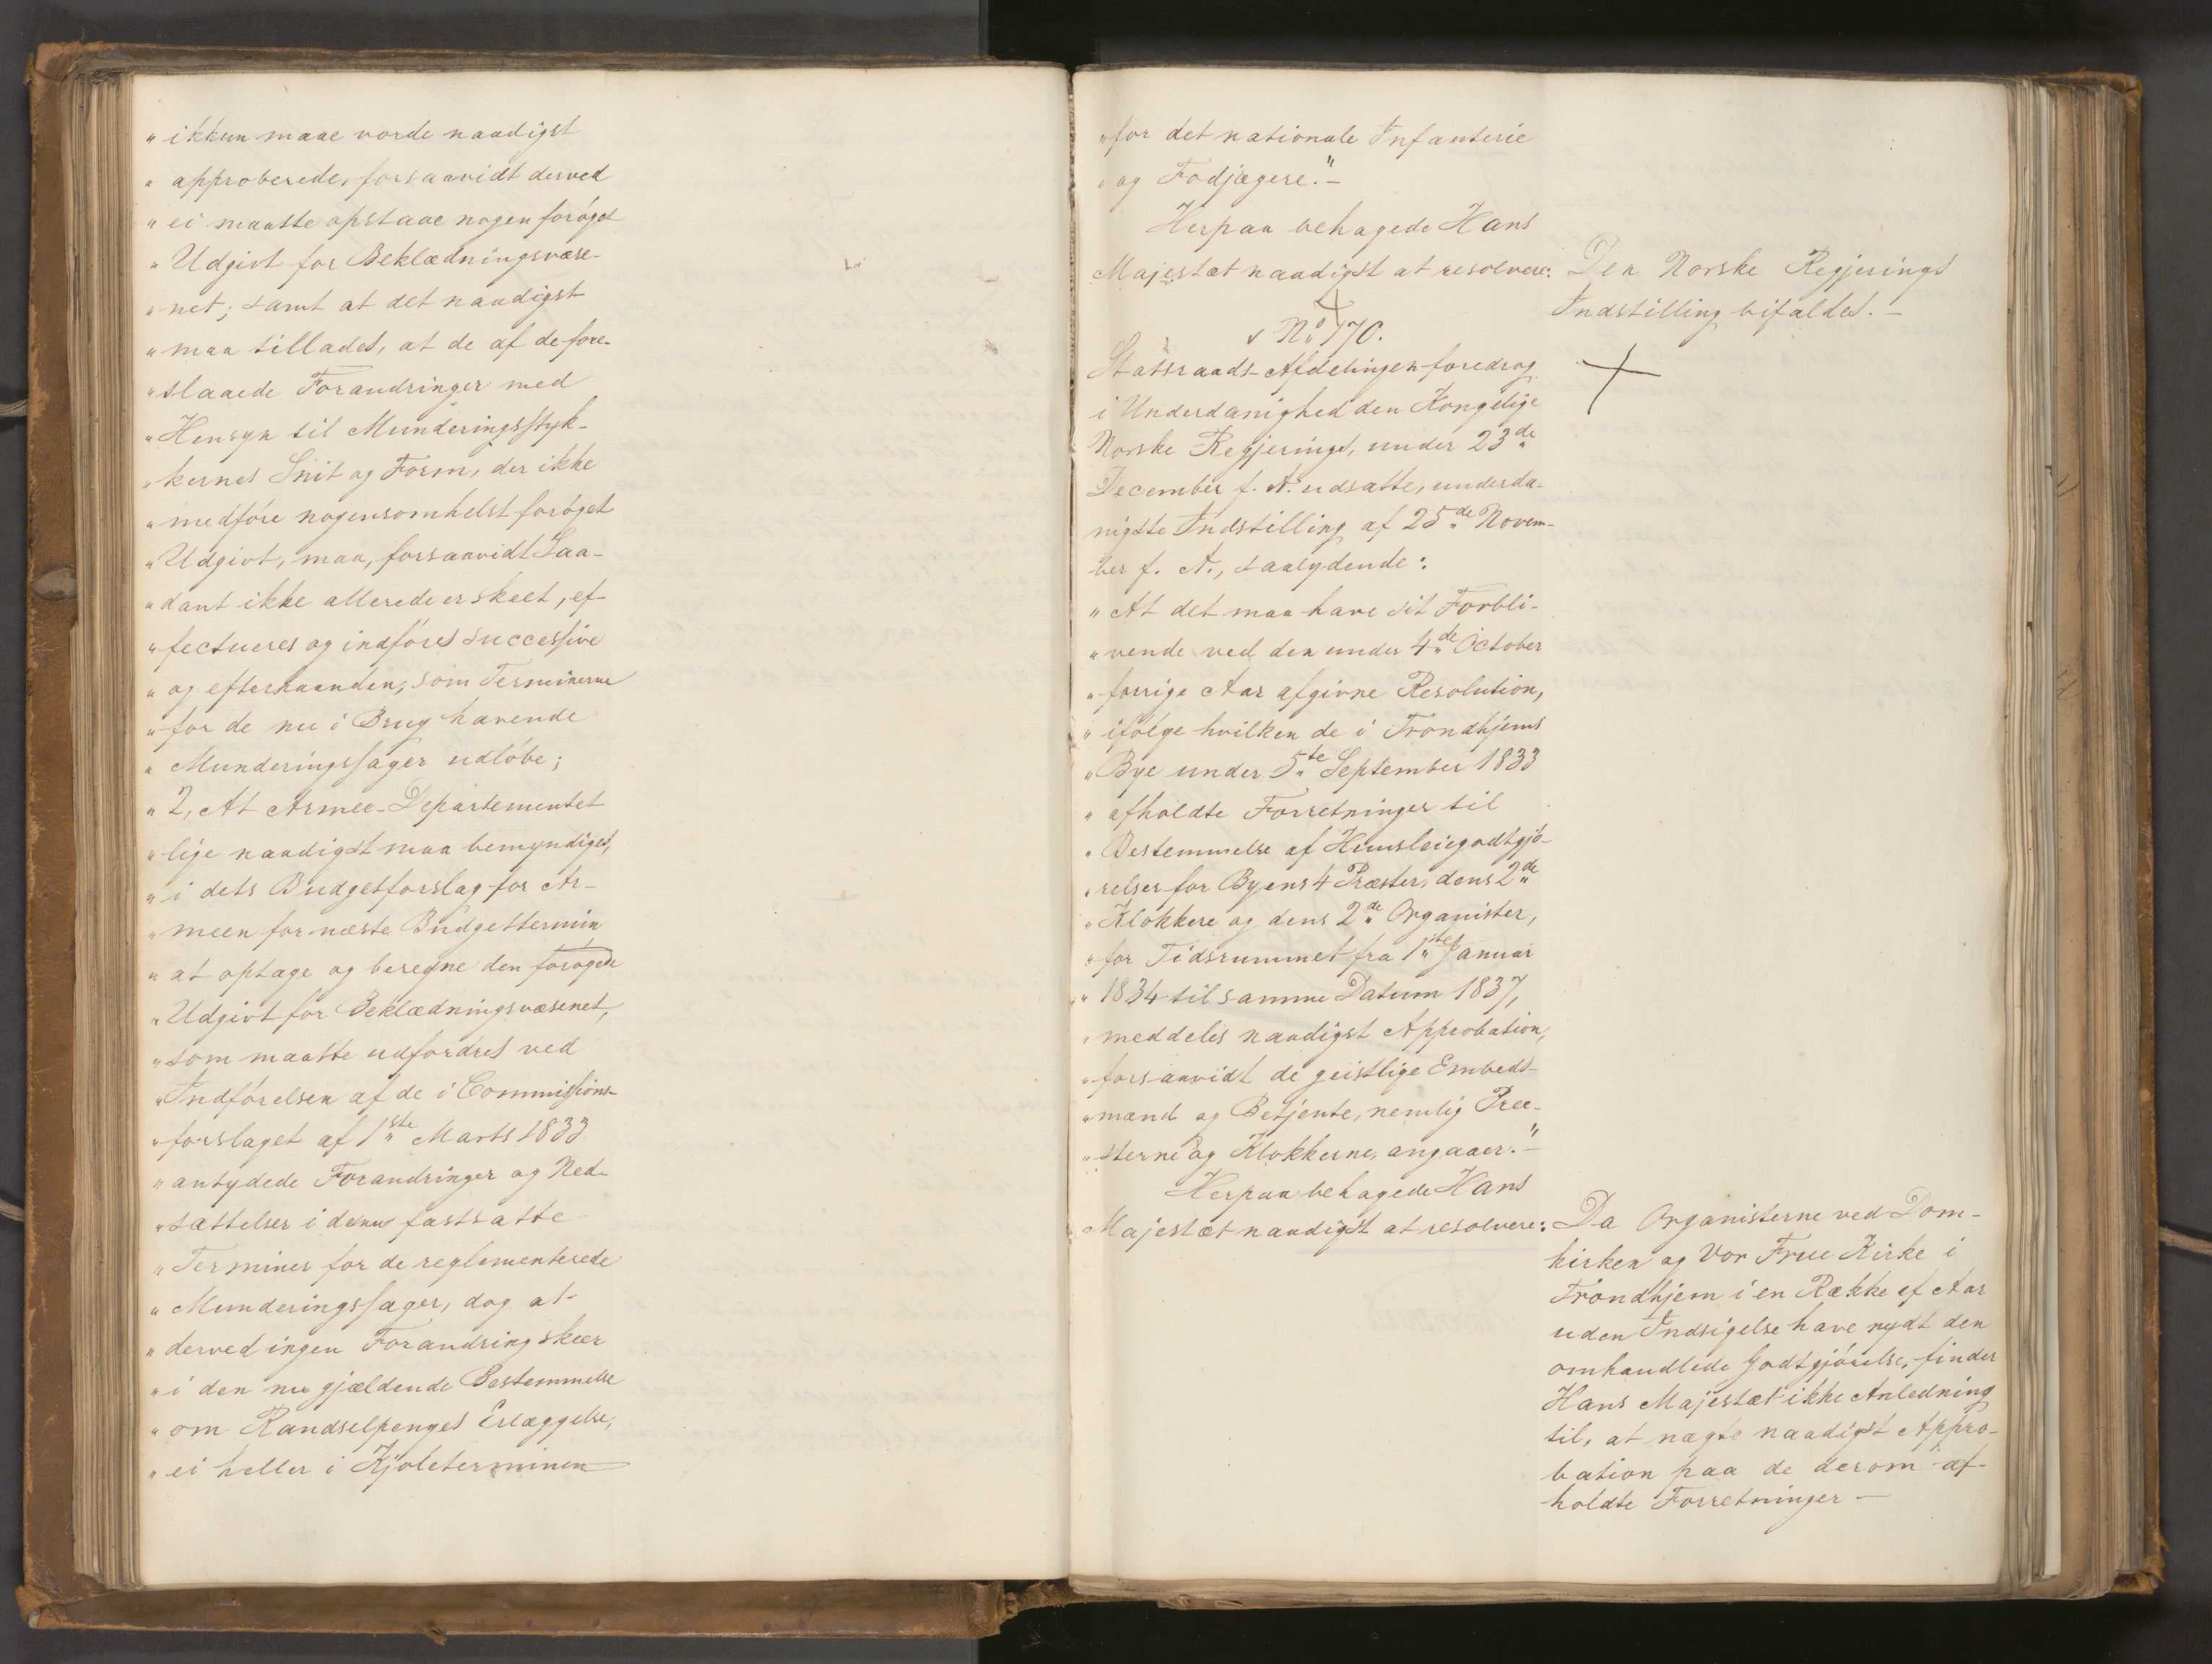 „ ikkun maae vorde naadigst
„ approberede, forsaavidt derved
„ ei maatte opstaae nogen forøget
„ Udgivt for Beklædningsvæse-
„ net; samt at det naadigst
„ maa tillades, at de af de fore-
„ slaaede Forandringer med
„ Hensyn til Munderingsstyk-
„ kernes Snit og Form, der ikke
„ medføre nogensomhelst forøget
„ Udgivt, maa, forsaavidt Saa-
„ dant ikke allerede er skeet, ef-
„ fectueres og indføres successive
„ og efterhaanden, som Terminerne
„ for de nu i Brug havende
„ Munderingssager udløbe;
„ 2, At Armee-Departementet
„ lige naadigst maa bemyndiges,
„ i dets Budgetforslag for Ar-
„ meen for næste Budgettermin
„ at optage og beregne den forøgede
„ Udgivt for Beklædningsvæsenet,
„ som maatte udfordres ved
„ Indførelsen af de i Commissions-
„ forslaget af 1ste Marts 1833
„ antydede Forandringer og Ned-
„ sættelser i de nu fastsatte
„ Terminer for de reglementerede
„ Munderingssager, dog at
„ derved ingen Forandring skeer
„ i den nu gjældende Bestemmelse
„ om Randselpenges Erlæggelse,
„ ei heller i Kjoleterminen
„ for det nationale Infanterie
„ og Fodjægere." -
Herpaa behagede Hans
Majestæt naadigst at resolvere:
Den Norske Regjerings
Indstilling bifaldes. -
No 170.
Statsraads-Afdelingen foredrog
i Underdanighed den Kongelige
Norske Regjerings, under 23de
December f. A. udsatte, underda-
nigste Indstilling af 25de Novem-
ber f. A., saalydende:
„ At det maa have sit Forbli-
„ vende ved den under 4de October
„ forrige Aar afgivne Resolution,
„ ifølge hvilken de i Trondhjems
„ Bye under 5te September 1833
„ afholdte Forretninger til
„ Bestemmelse af Huusleiegodtgjø-
„ relser for Byens 4 Præster, dens 2de
„ Klokkere og dens 2de Organister,
„ for Tidsrummet fra 1ste Januar
„ 1834 til samme Datum 1837,
„ meddeles naadigst Approbation,
„ forsaavidt de geistlige Embeds-
„ mænd og Betjente, nemlig Præ-
„ sterne og Klokkerne, angaaer." -
Herpaa behagede Hans
Majestæt naadigst at resolvere:
Da Organisterne ved Dom-
kirken og Vor Frue Kirke i
Trondhjem i en Række af Aar
uden Indsigelse have nydt den
omhandlede Godtgjørelse, finder
Hans Majestæt ikke Anledning
til, at nægte naadigst Appro-
bation paa de derom af-
holdte Forretninger -